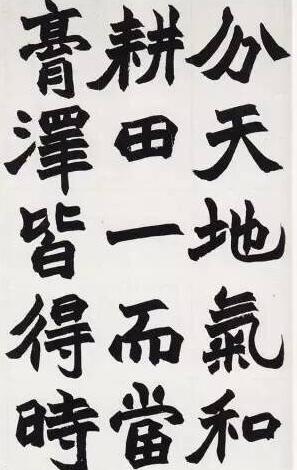 分天地氣和
耕田一而當
膏澤皆得時